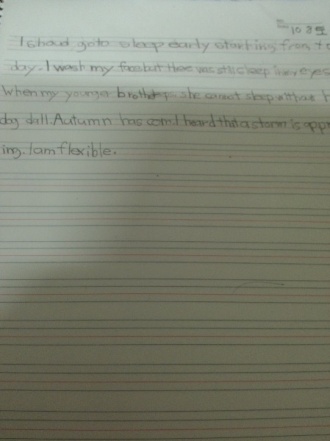 10 8월
I shoud go to sleep early starting from to
day. I wash my face but there was still sleep in my eyes
When my younger brother he cannot sleep without h
dog doll. Autumn has com I heard that a storm is appr
ing. I am flexible.